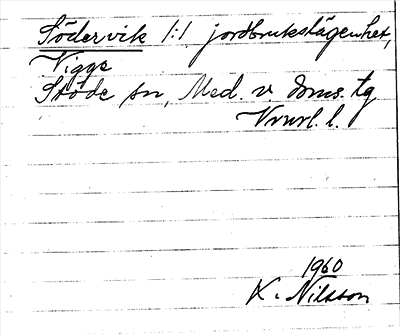 Södervik 1:1 jordbrukslägenhet,
Vigge
Stöde sn, Med. v. doms. tg
Vnrl. l.
1960
K. Nilsson